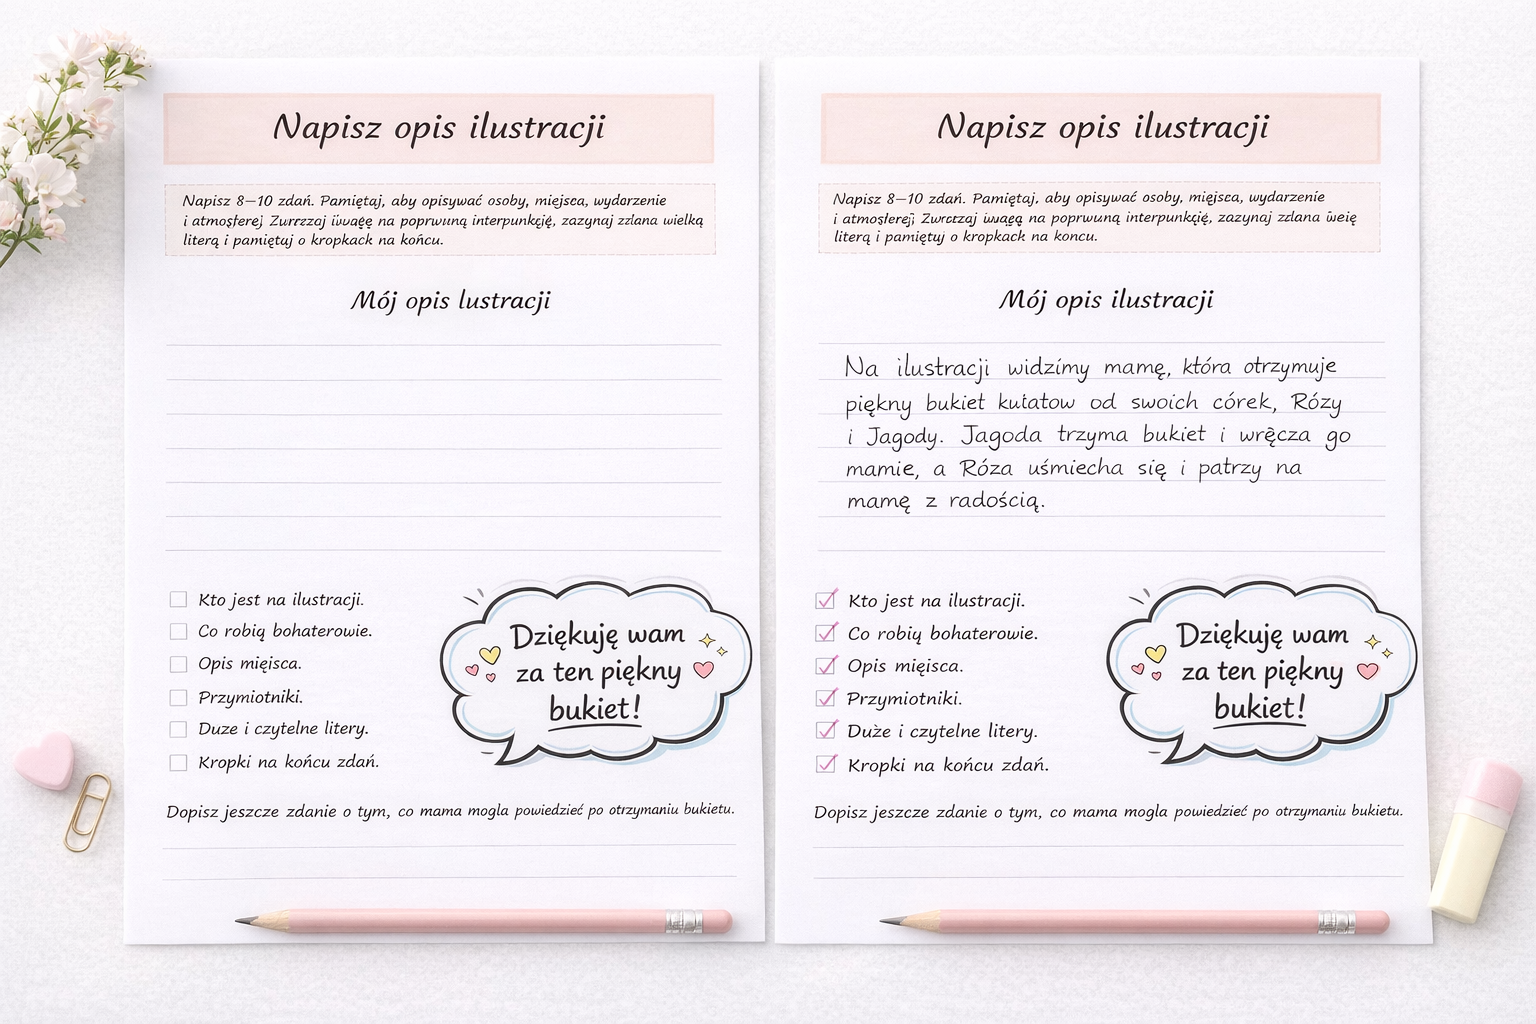 Napisz opis ilustracji
Napisz 8–10 zdań. Pamiętaj, aby opisywać osoby, miejsca, wydarzenie
i atmosferej na poprwuną interpunkcję, zazynaj zdana wielką
literą i pamiętaj o kropkack na końcu.
Mój opis lustracji
Kto jest na ilustracji.
Co robią bohaterowie.
Opis mięjsca.
Przymiotniki.
Duze i czytelne litery.
Kropki na końcu zdań.
Dziękuję wam
za ten piękny
bukiet!
Dopisz jeszcze zdanie o tym, co mama mogla powiedzieć po otrzymaniu bukietu.
Napisz opis ilustracji
Napisz 8–10 zdań. Pamiętaj, aby opisywać osoby, miejsca, wydarzenie
i na poprwuną interpunkcję, zazynaj zdana
literą i pamiętuj o kropkack na koncu.
Mój opis ilustracji
Na ilustracji widzimy mamę, która otrzymuje
piękny bukiet od swoich córek, Rózy
i Jagody. Jagoda trzyma bukiet i wręcza go
mamie, a Róza uśmiecha się i patrzy na
mamę z radością.
Kto jest na ilustracji.
Co robią bohaterowie.
Opis mięjsca.
Przymiotniki.
Duże i czytelne litery.
Kropki na końcu zdań.
Dziękuję wam
za ten piękny
bukiet!
Dopisz jeszcze zdanie o tym, co mama mogla powiedzieć po otrzymaniu bukietu.